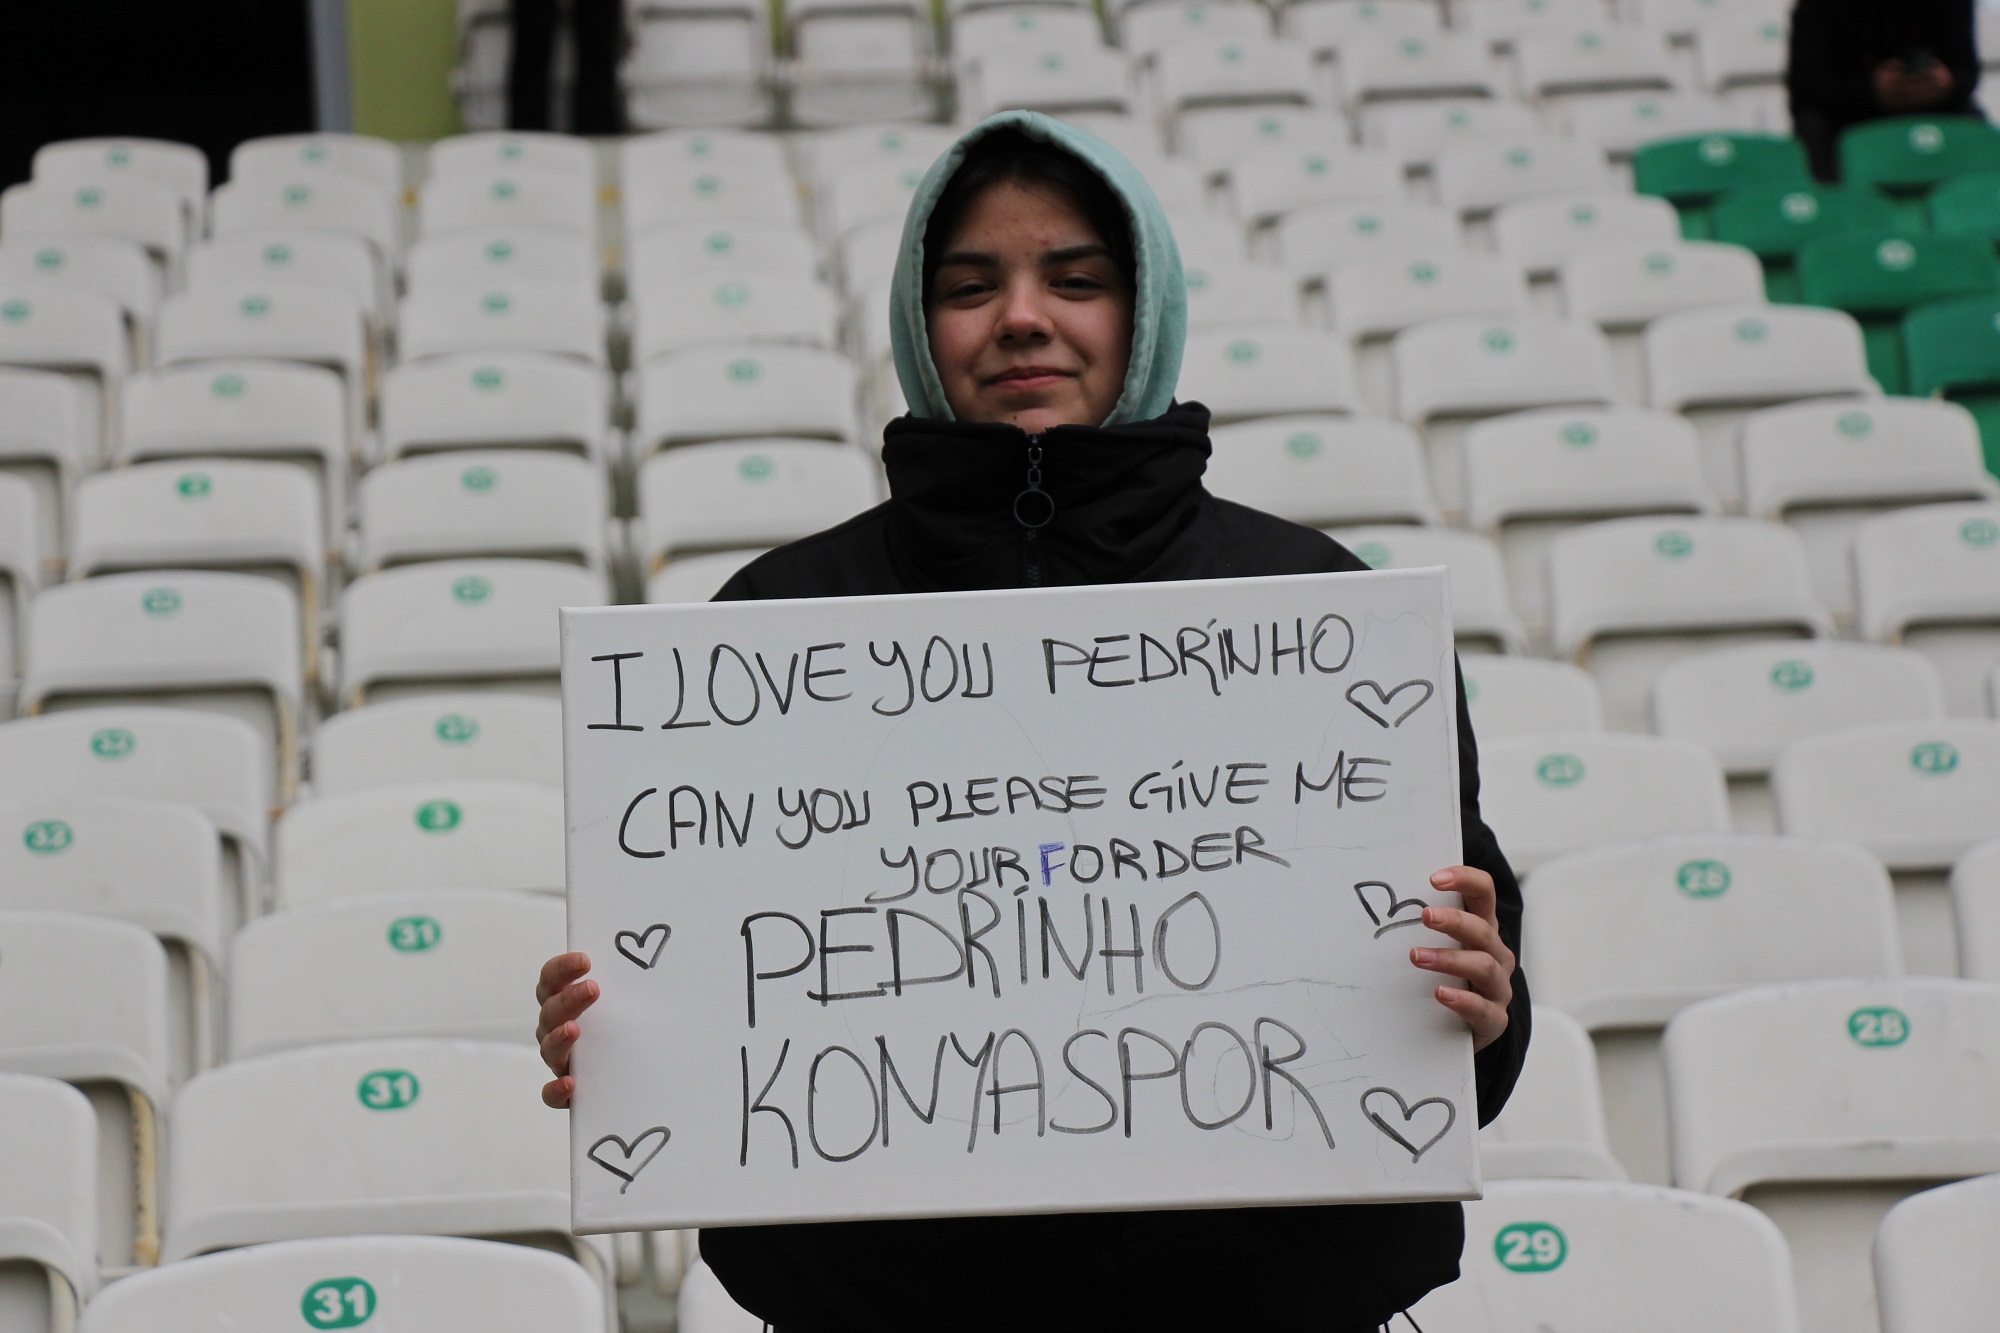 I LOVE YOU PEDRİNHO
CAN YOU PLEASE GİVE ME
YOUR FORDER
PEDRİNHO
KONYASPOR
32
3
31
31
31
27
28
28
29